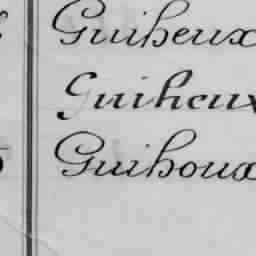 Guiheux
Guiheux
Guihoux